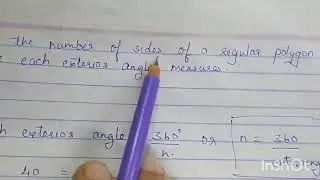 the number of sides of a regular polygon
each exterior angle measures
exterior angle 360° or n = 360
n.
40 =
InShot